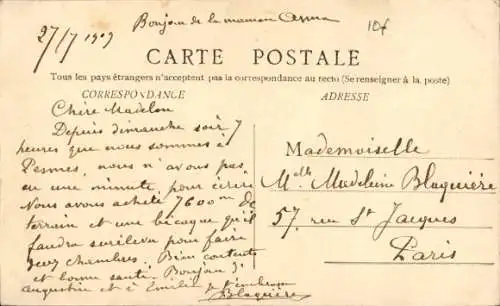 27/7 1909
Bonjour de la maman Anna
10f
CARTE POSTALE
Tous les pays étrangers n'acceptent pas la correspondance au recto (Se renseigner à la poste)
CORRESPONDANCE
ADRESSE
Chère Madelon
Depuis dimanche soir 7
heures que nous sommes à
Pesmes, nous n'avons pas
eu une minute pour écrire
Nous avons acheté 7600m de
terrain et une bicoque qu'il
faudra surélever pour faire
deux chambres. Bien contents
et bonne santé. Bonjour à
augustine et à Emilie je t'embrasse
Blaguière
Mademoiselle
Melle Madeleine Blaguière
57, rue St Jacques
Paris